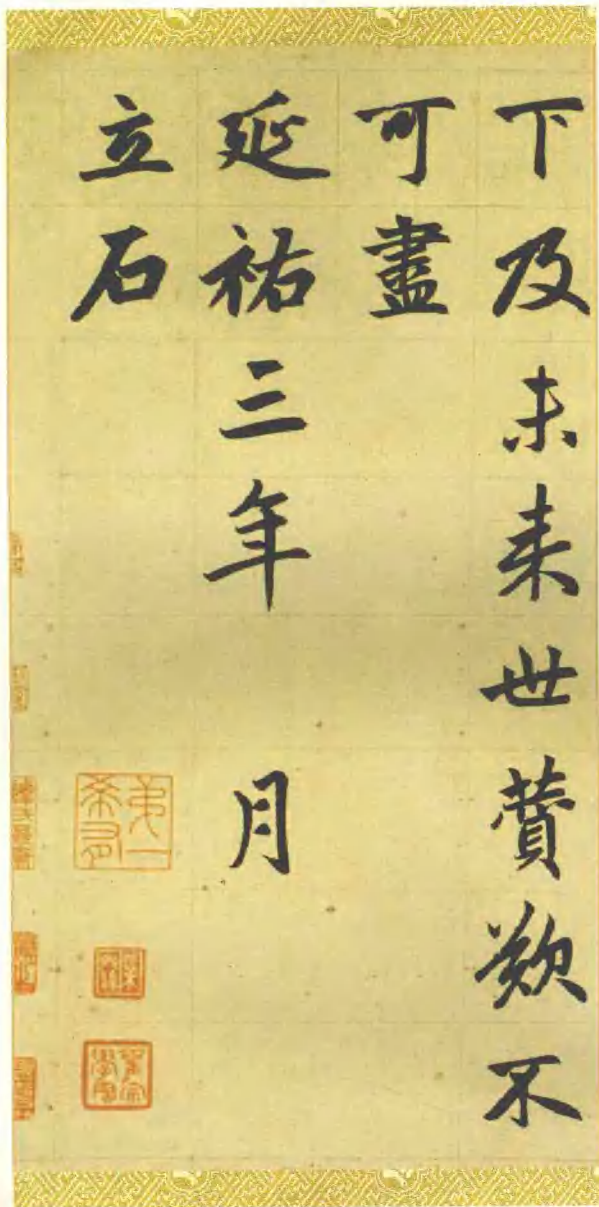 下及未来世賛歎不
可盡
延祐三年 月
立石